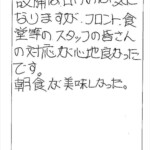 設備は古いのが気に
なりますが、フロント、食
堂等のスタッフの皆さん
の対応が心地良かった
です。
朝食が美味しかった。